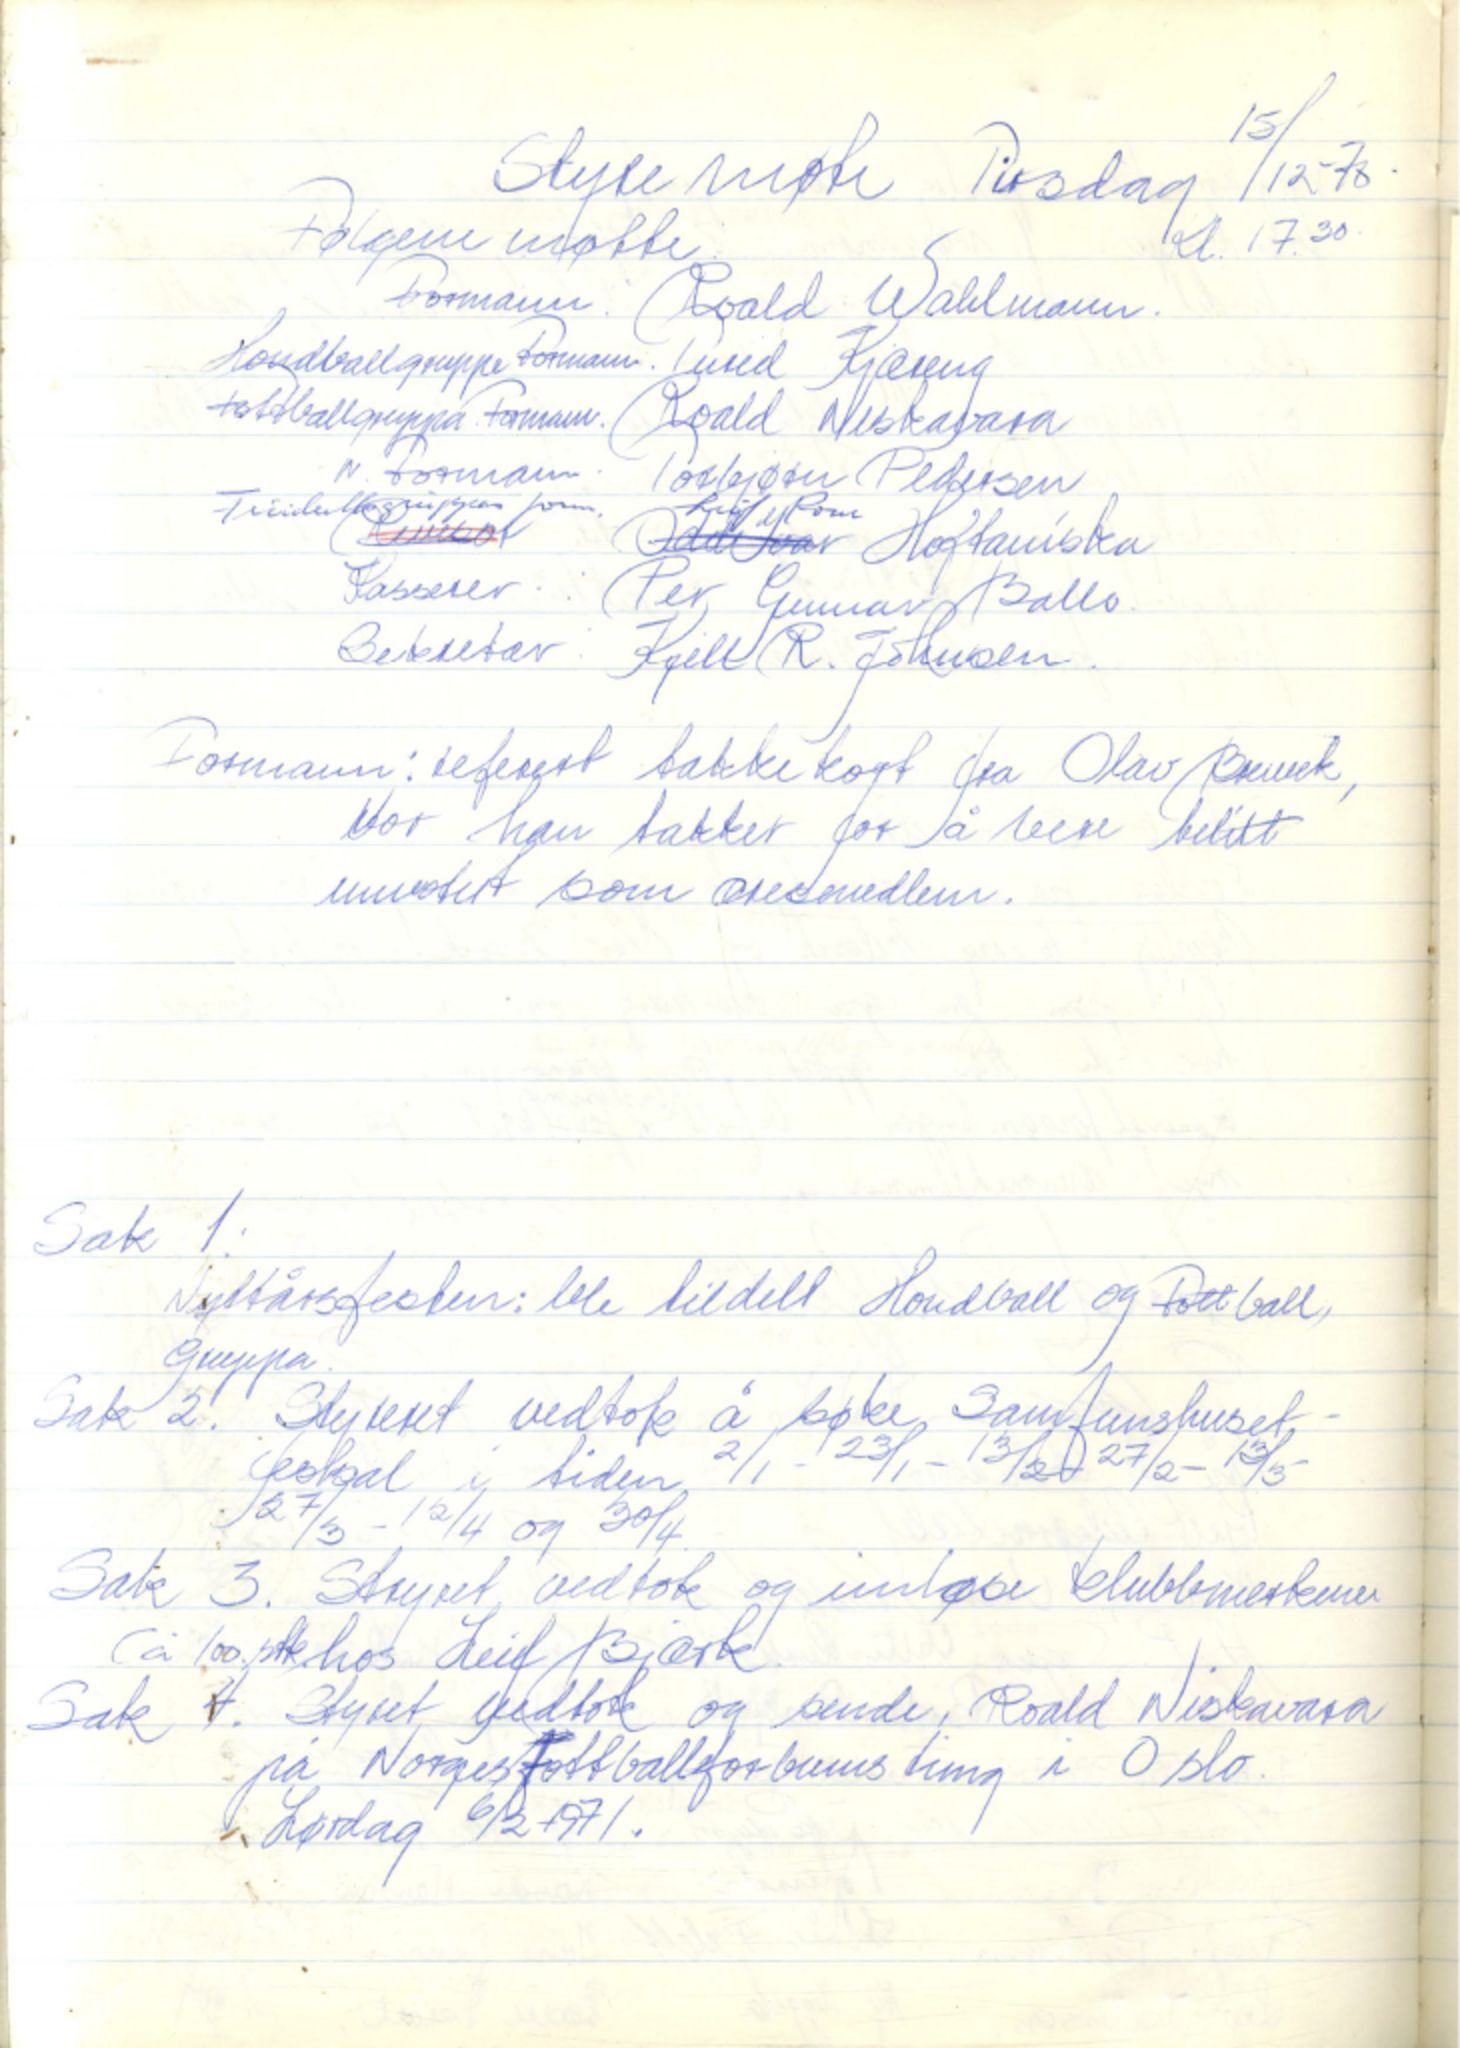 Styremøte Tirsdag 15/12-70.
Følgene møtte: Kl. 17.30.
Formann: Roald Wahlmann.
Handballgruppe Formann. Turid Kjæreng
Fottballgruppa Formann. Roald Niskavara
N. Formann. Torbjørn Pedersen
Friidrettsgruppens form. Leif Rom
Oddvar Høftaniska
Kasserer: Per Gunnar Ballo.
Sekretær: Kjell R. Johnsen.
Formann: referert takkekort fra Olav
vor han takker for å vere blitt
som æresmedlem.
Sak 1:
Nyttårsfesten: ble tildelt Handball og Fottball,
Gruppa.
Sak 2. Styreret vedtok å søke, Samfunshuset-
festsal i tiden 2/1 - 23/1 - 13/2 - 27/2 - 13/3-
27/3 - 12/4 og 30/4.
Sak 3. Stryret, vedtok og innløse klubbmerkener
(à 100. stk hos Leif Bjørk.
Sak 4. Styret vedtok og sende, Roald Niskavara
på Norges Fottballforbunsting i Oslo.
Lørdag 6/2-1971.